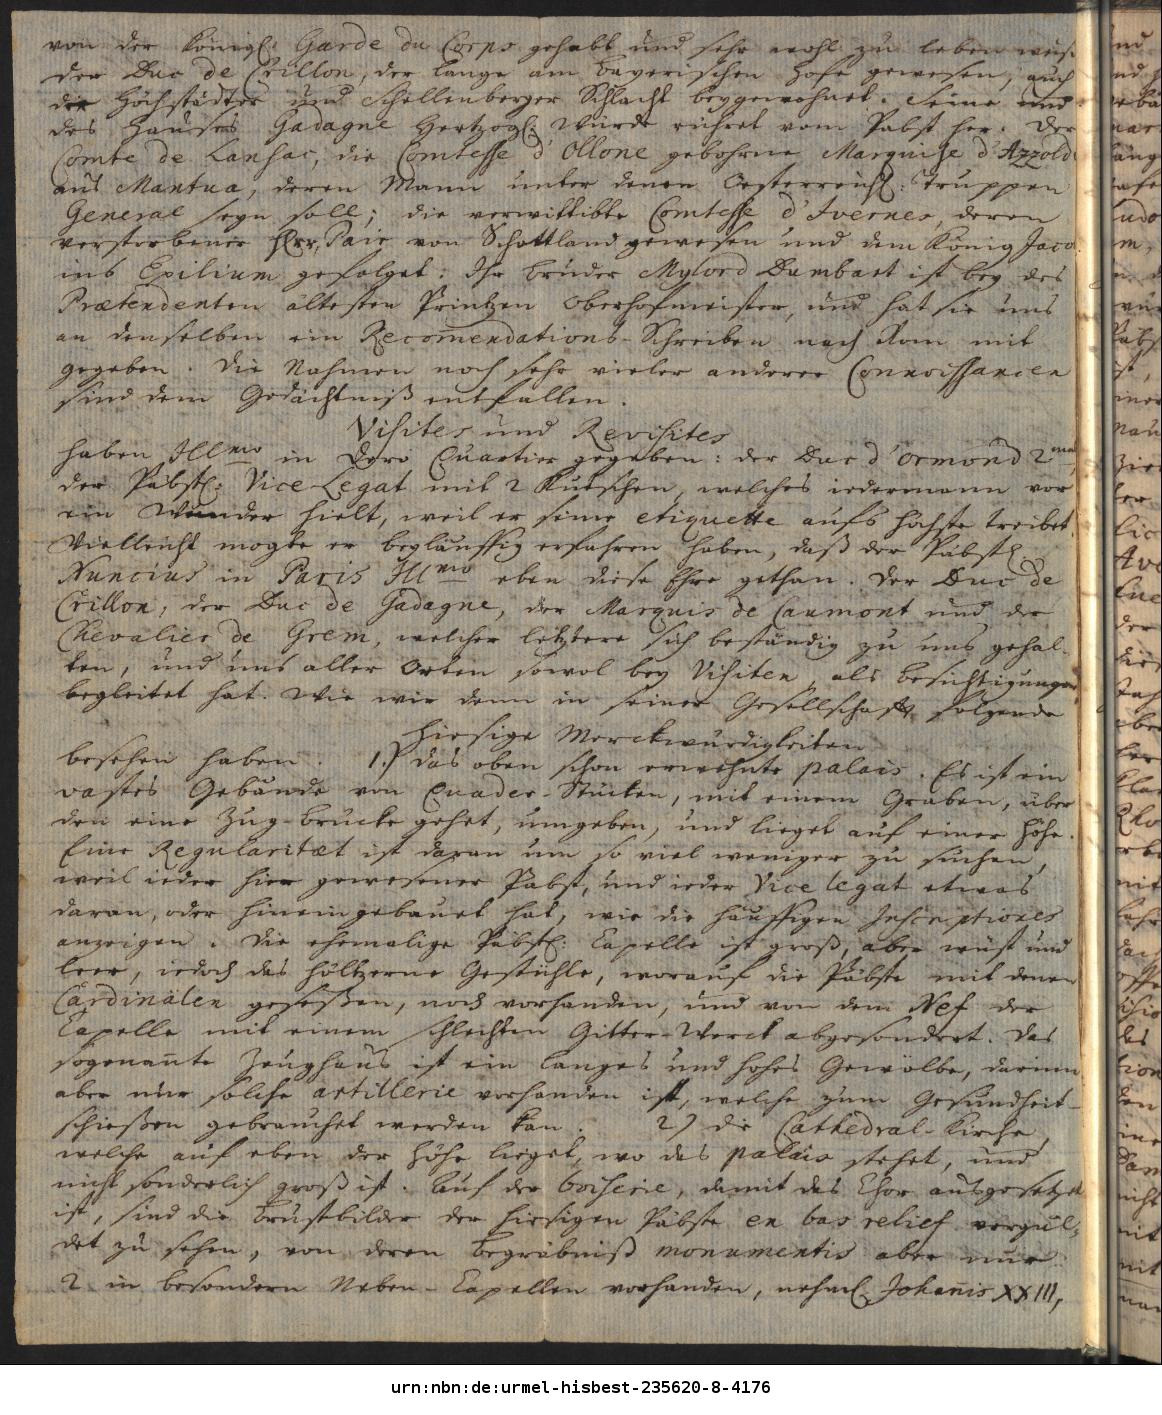 von der Königl: Garde du Corps gehabt und sehr wohl zu leben weiß.
der Duc de Crillon, der lange am bayerischen Hofe gewesen, auch
die Höchstädter und Schellenberger Schlacht beygewohnet. Seine und
des Hauses Gadagne Hertzogl: Würde rühret vom Pabst her. Der
Comte de Lansac, die Comtesse d'Ollone gebohrne Marquise d'Azzold
aus Mantua, deren Mann unter denen Oesterreichl: Truppen
General seyn soll; die verwittibte Comtesse d'Ivernes, deren
verstorbener Herr, Pair von Schottland gewesen und dem König Jaco
ins Exilium gefolget: Ihr bruder Mylord Dumbart ist bey des
Prætendenten ältesten Printzen Oberhofmeister, und hat sie uns
an denselben ein Recomendations-Schreiben nach Rom mit
gegeben. Die Nahmen noch sehr vieler anderer Connoissancen
sind dem Gedächtniß entfallen.
Visites und Revisites
haben Illmo in Dero Quartier gegeben: der Duc d'Ormond 2mal,
der Päbstl: Vice-Legat mit 2 Kutschen, welches iedermann vor
ein Wunder hielt, weil er seine etiquette aufs höchste treibet.
Vielleicht mogte er beyläuffig erfahren haben, daß der Päbstl.
Nuncius in Paris Illmo eben diese Ehre gethan. Der Duc de
Crillon, der Duc de Gadagne, der Marquis de Caumont und der
Chevalier de Grem, welcher letztere sich beständig zu uns gehal-
ten, und uns aller Orten sowol bey Visiten, als besichtigungen
begleitet hat. Wie wir denn in seiner Gesellschafft folgende
hiesige Merckwürdigkeiten
besehen haben. 1.) das oben schon erwehnte palais. Es ist ein
vastes Gebäude von Quader-Stücken, mit einem Graben, über
den eine Zug-brücke gehet, umgeben, und lieget auf einer Höhe.
Eine Regularitæt ist daran um so viel weniger zu suchen,
weil ieder hier gewesener Pabst, und ieder Vice legat etwas
daran, oder hinein gebauet hat, wie die häuffigen Inscriptiones
anzeigen. Die ehemalige Päbstl: Capelle ist groß, aber wüst und
leer, iedoch das höltzerne Gestühle, worauf die Päbste mit denen
Cardinälen gesessen, noch vorhanden, und von dem Nef der
Capelle mit einem schlechten Gitter-Werck abgesondert. Das
sogenannte Zeughaus ist ein langes und hohes Gewölbe, darinn
aber nur solche artillerie vorhanden ist, welche zum Gesundheit-
schießen gebrauchet werden kan. 2) die Cathedral-Kirche,
welche auf eben der Höhe lieget, wo das palais stehet, und
nicht sonderlich groß ist. Auf der boiserie, damit das Chor ausgesetzet
ist, sind die Brustbilder der hiesigen Päbste en bas relief vergül-
det zu sehen, von deren Begräbniß monumentis aber nur
2 in besondern Neben-Capellen vorhanden, nehml. Johanis XXIII,
urn:nbn:de:urmel-hisbest-235620-8-4176